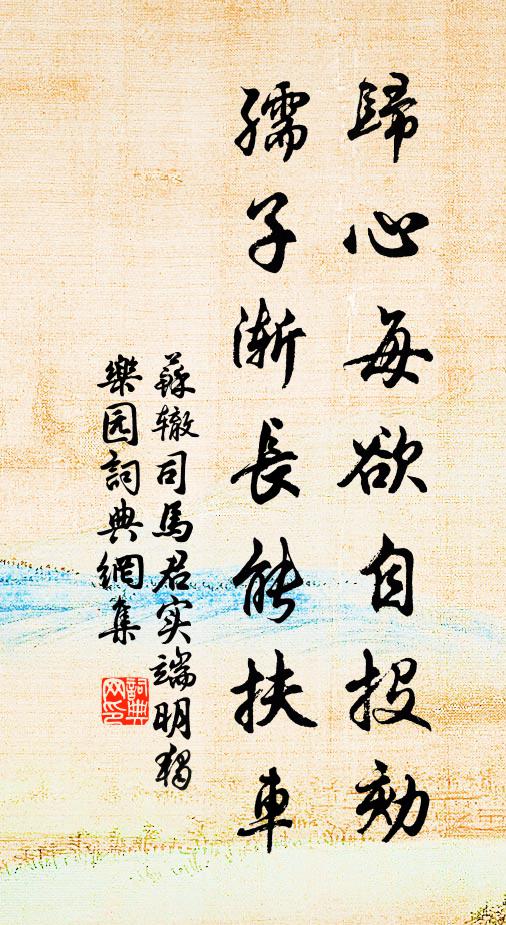 歸心每欲自投劾
孺子漸長能扶車
蘇辙司馬君实端明独
樂园詞典網集
詞典网印